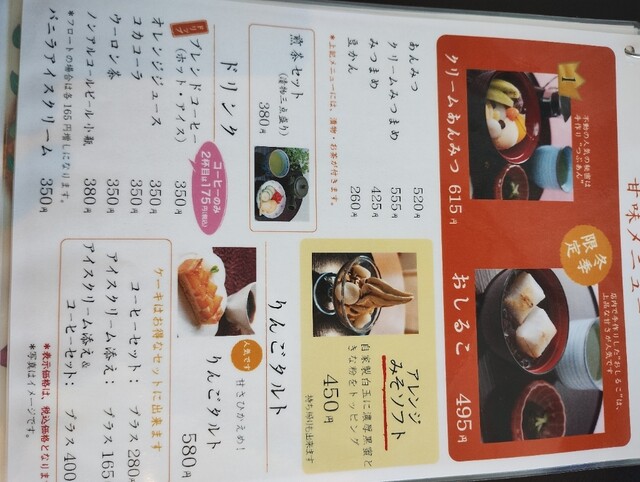 甘味メニュー
1
不動の人気の秘密は
手作り“つぶあん”
クリームあんみつ 615円
冬季
限定
店内で手作りした“おしるこ”は、
上品な甘さが人気です
おしるこ 495円
あんみつ 520円
クリームみつまめ 555円
みつまめ 425円
豆かん 260円
*上記メニューには、漬物・お茶が付きます。
煎茶セット
(漬物三点盛り)
380円
アレンジ
みそソフト
自家製白玉に濃厚黒蜜と
きな粉をトッピング
450円
持ち帰りも出来ます
ドリンク
ドリップ
ブレンドコーヒー
(ホット・アイス) 350円
コーヒーのみ
2杯目は175円(税込)
オレンジジュース 350円
コカコーラ 350円
ウーロン茶 350円
ノンアルコールビール小瓶 380円
*フロートの場合は各165円増しになります。
バニラアイスクリーム 350円
りんごタルト
人気です
甘さひかえめ!
りんごタルト 580円
ケーキはお得なセットに出来ます
コーヒーセット: プラス 280円
アイスクリーム添え: プラス 165
アイスクリーム添え&
コーヒーセット: プラス 400
*表示価格は、税込価格となりま
*写真はイメージです。